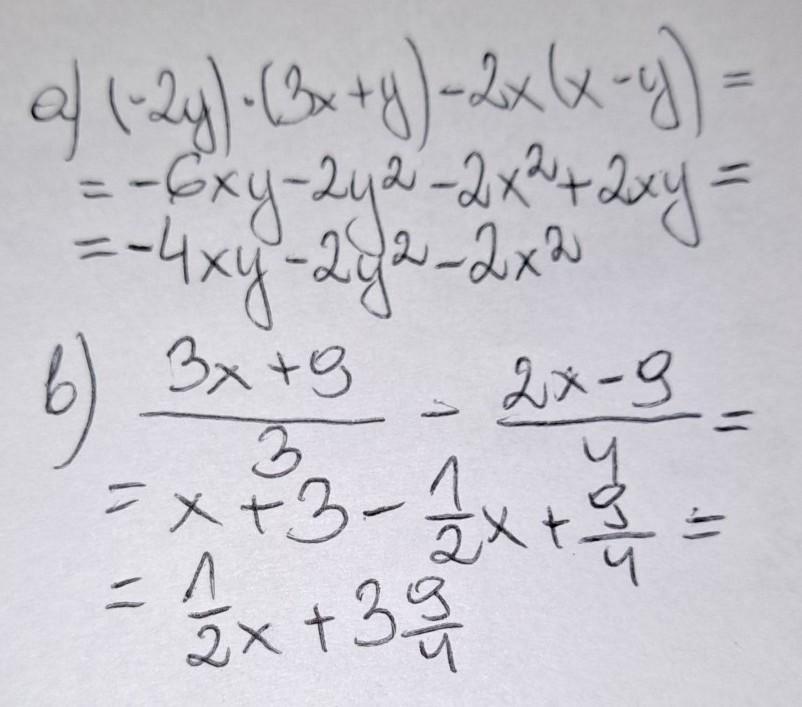 a) (-2y)·(3x+y)-2x(x-y)=
=-6xy-2y²-2x²+2xy=
=-4xy-2y²-2x²
b) \frac{3x+9}{3} - \frac{2x-9}{4} =
= x+3-\frac{1}{2}x+\frac{9}{4} =
= \frac{1}{2}x+3\frac{9}{4}